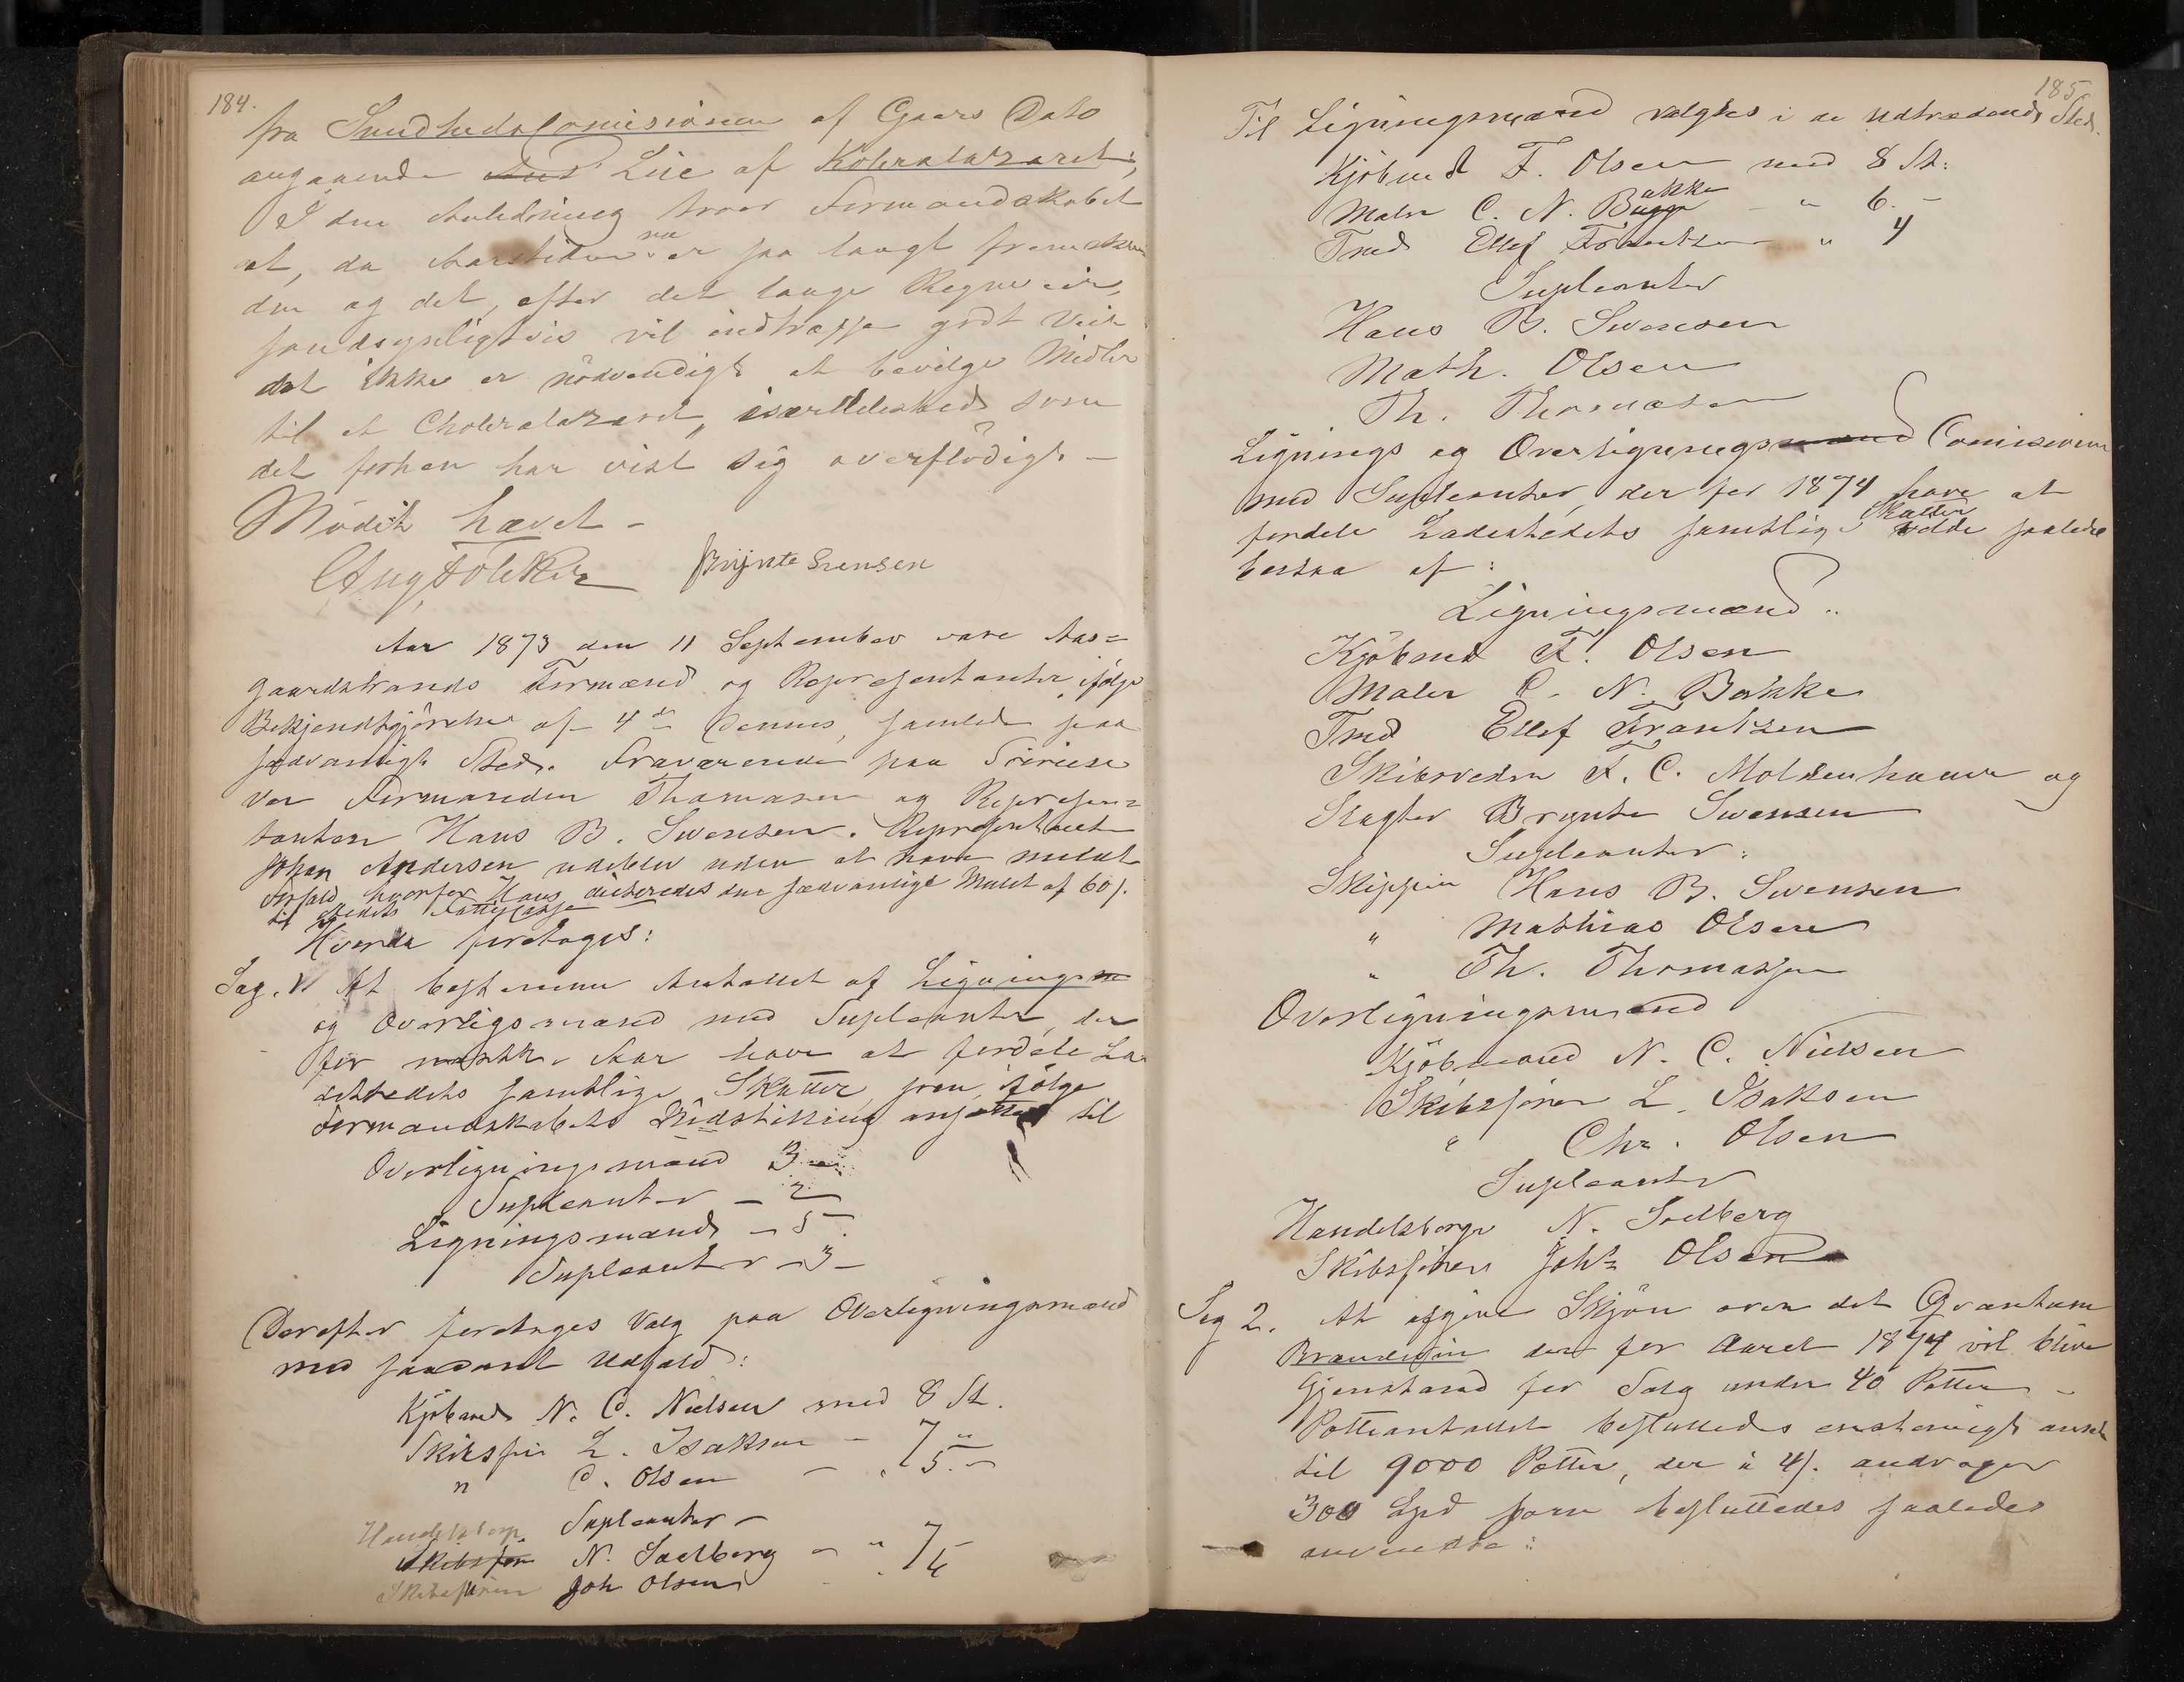 184.
fra Sundhedscomissionen af Gaars Dato
angaaende Leie af Koleralazaret;
I den Anledning troer Formandskabet
at, da Aarstiden nu er saa langt fremskre
den og det, efter det lange Regnveir,
sandsynligtvis vil indtræffe godt Veir
det ikke er nödvendigt at bevilge Midler
til et Choleralazaret, isærdeleshed som
det förhen har vist sig overflödigt –
Mödet hævet –
Brynte Svensen
Aar 1873 den 11 September vare Aas=
gaardstrands Formænd og Representanter ifölge
Bekjendtgjörelse af 4de dennes, samlede paa
sædvanligt Sted. Fraværende paa Sireise
var Formanden Thomasen og Represen=
tanten Hans B. Svensen. Representant
Johan Andersen udeblev uden at have meldt
Forfald hvorfor Hans dicteredes den sædvanlige Mulct af 60 s.
til Stedets Fattigkasse
Hvorda foretoges:
Sag. 1. At bestemme Antallet af Lignings
og Overligsmænd med Supleanter, der
for næste Aar have at fordele La
destedets samtlige Skatter, som, ifölge
Formandskabets Indstilling ansættes til
Overligningsmænd 3 –
Supleanter – 2
Ligningsmænd – 5
Supleanter – 3 –
Derefter foretages Valg paa Overligningsmænd
med saadant Udfald:
Kjöbmd N. C. Nielsen med 8 St.
Skibsför L. Isaksen – 7 "
" C. Olsen – " 5. –
Supleanter –
Handelsborg. N. Soelberg – " 7
Skibsförer Joh Olsen
185
Til Ligningsmænd valgtes i de udtrædendes Sted.
Kjöbmd F. Olsen med 8 St:
Maler C. N. Bakke – " 6. –
Tmd Ellef Frantzen " 4
Supleanter
Hans B. Svensen
Math. Olsen
Th. Thomasen
Lignings og Overlignings Comissionen
med Supleanter, der for 1874 have at
fordele Ladestedets samtlige Skatter vilde saaledes
bestaa af:
Ligningsmænd
Kjöbmd F. Olsen
Maler C. N. Bakke
Tmd Ellef Frantzen
Skibsreder F. C. Moldenhauer og
Slagter Brynte Svensen
Supleanter:
Skipper Hans B. Svensen
" Mathias Olsen
" Th. Thomassen
Overligningsmænd
Kjöbmand N. C. Nielsen
Skibsförer L. Isaksen
" Chr. Olsen
Supleanter
Handelsborger N. Soelberg
Skibsförer Johs Olsen
Sag 2. At afgive Skjön over det Qvantum
Brændeviin der for Aaret 1874 vil blive
Gjenstand for Salg under 40 Potter –
Potteantallet besluttedes enstemigt ansat
til 9000 Potter, der à 4 s. andrager
300 Spd som besluttedes saaledes
anvendte: